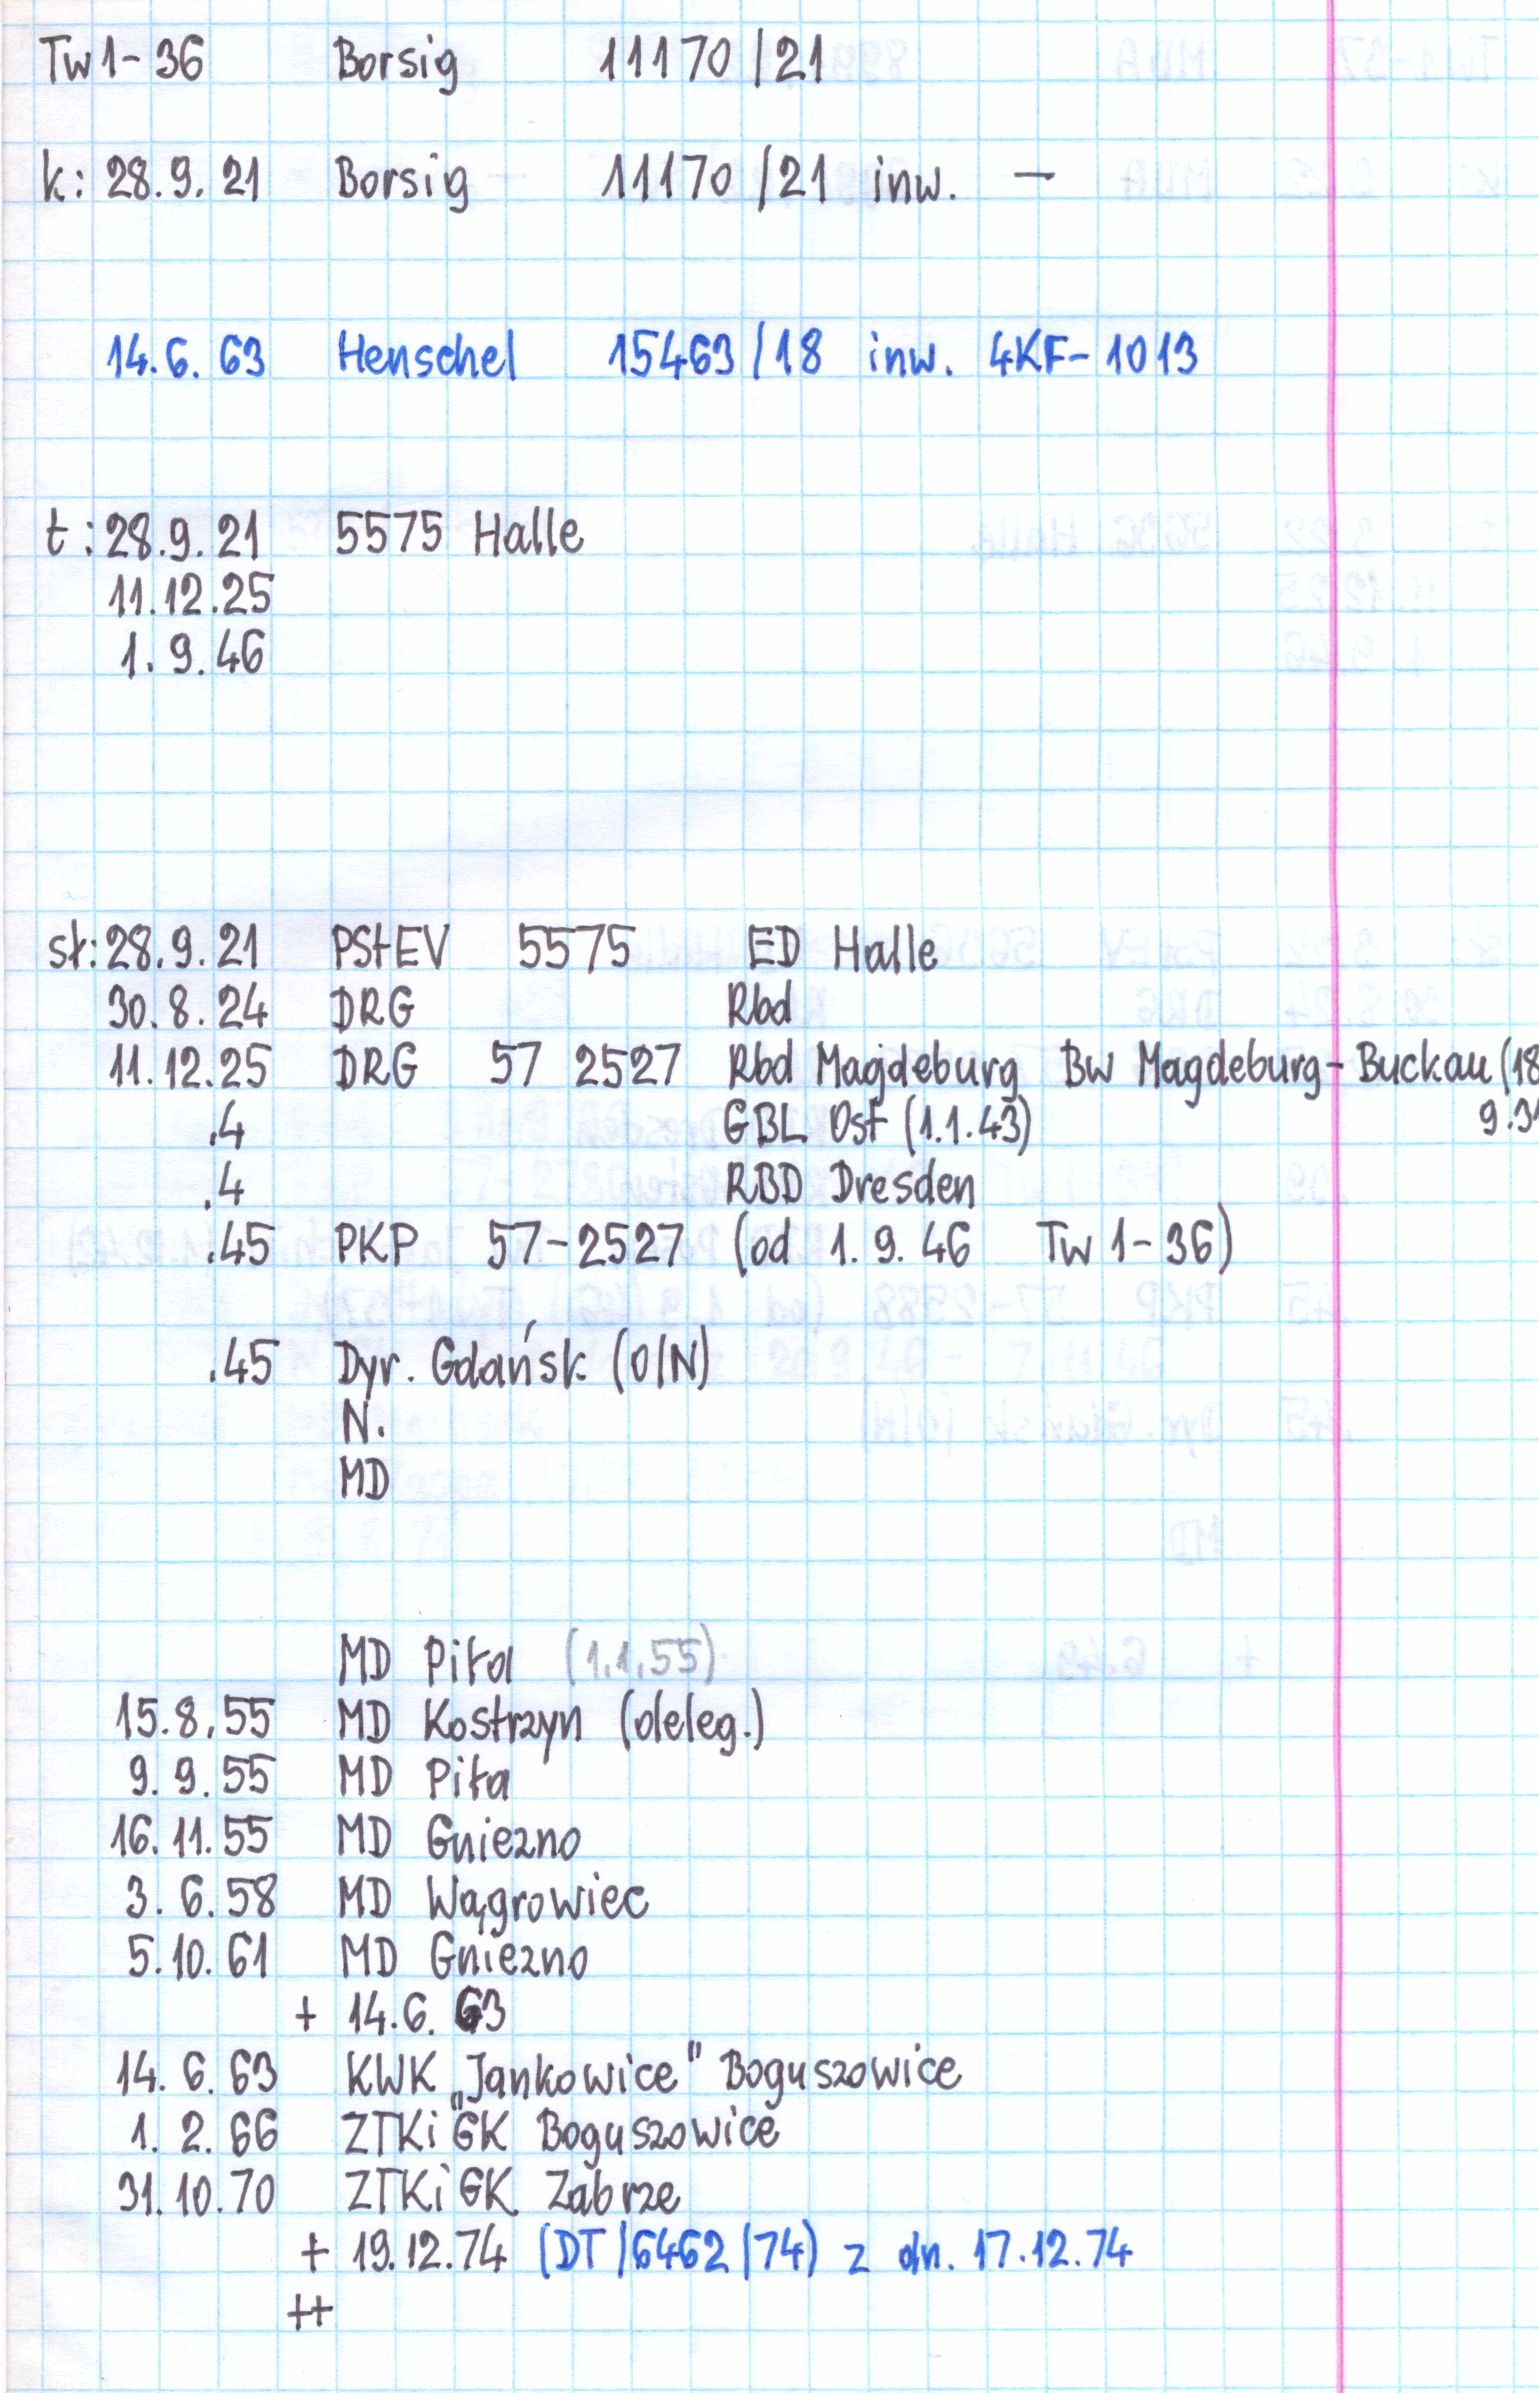 Tw1-36 Borsig 11170/21
k: 28.9.21 Borsig 11170/21 inw. —
14.6.63 Henschel 15463/18 inw. 4KF-1013
t: 28.9.21 5575 Halle
11.12.25
1.9.46
sł: 28.9.21 PStEV 5575 ED Halle
30.8.24 DRG Rbd
11.12.25 DRG 57 2527 Rbd Magdeburg Bw Magdeburg-Buckau (18
.4 GBL Ost (1.1.43) 9.3
.4 RBD Dresden
.45 PKP 57-2527 (od 1.9.46 Tw1-36)
.45 Dyr. Gdańsk (O/N)
N.
MD
MD Piła (1.1.55)
15.8.55 MD Kostrzyn (deleg.)
9.9.55 MD Piła
16.11.55 MD Gniezno
3.6.58 MD Wągrowiec
5.10.61 MD Gniezno
+ 14.6.63
14.6.63 KWK „Jankowice" Boguszowice
1.2.66 ZTKiGK Boguszowice
31.10.70 ZTKiGK Zabrze
+ 19.12.74 (DT/6462/74) z dn. 17.12.74
++